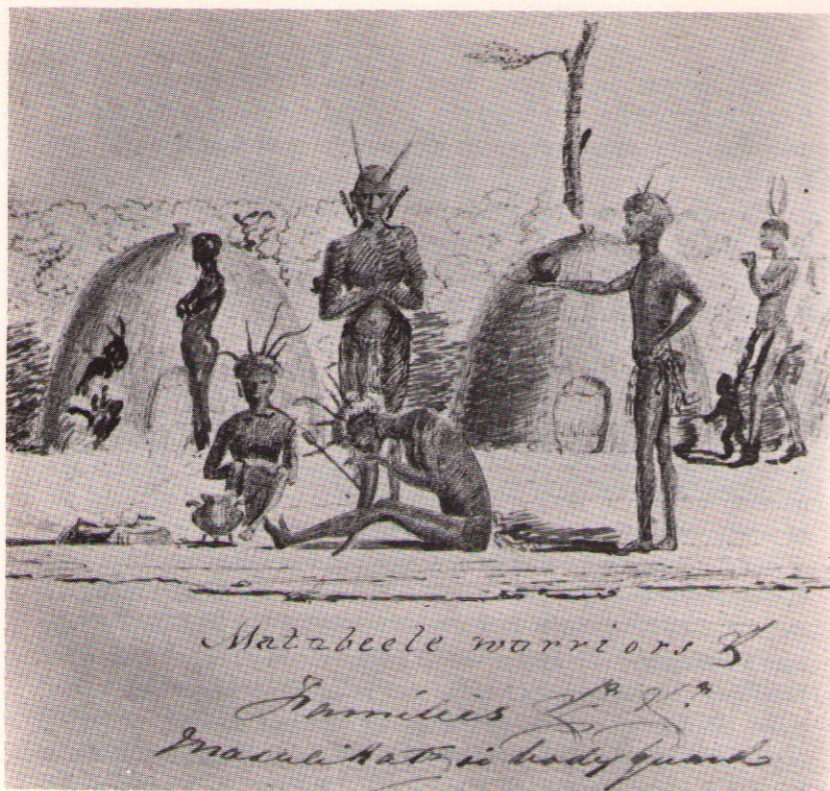 Matabeele warriors &
Families &c &c
Masulikatzi bodyguard